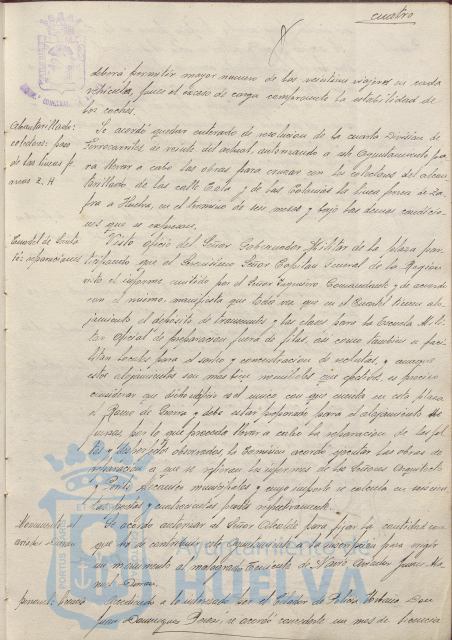 cuatro
deberá permitir mayor número de los veintiún viajeros en cada
vehículo, pues el exceso de carga compromete la estabilidad de
los coches.
Alcantarillado:
colectores: paso
de las líneas f-
arreas Z. H
Se acordó quedar enterado de resolución de la cuarta División de
Ferrocarriles, de veinte del actual, autorizando a este Ayuntamiento pa-
ra llevar a cabo las obras para cruzar con los colectores del alcan-
tarillado de las calle Cala y de las Colonias la línea férrea de Za-
fra a Huelva, en el término de seis meses y bajo las demás condicio-
nes que se expresan.
Cuartel de Santa
fé: reparaciones
Visto oficio del Señor Gobernador Militar de la plaza par-
ticipando que el Excmo. Señor Capitán General de la Región
visto el informe emitido por el Señor Ingeniero Comandante y de acuerdo
con el mismo, manifiesta que toda vez que en el Cuartel tienen alo-
jamiento el depósito de transeuntes y las clases para la Escuela Mili-
tar Oficial de preparación fuera de filas, así como también se faci-
litan locales para el sorteo y concentración de reclutas, y aunque
estos alojamientos son más bien eventuales que efectivos, es preciso
considerar que dicho edificio es el único con que cuenta en esta plaza
el Ramo de Guerra y debe estar preparado para el alojamiento de
fuerzas, por lo que procede llevar a cabo la reparación de las fal-
tas y desperfectos observados, la Comisión acordó ejecutar las obras de
reparación a que se refieren los informes de los Señores Arquitecto
y Perito Mecánico municipales y cuyo importe se calcula en
pesetas y cuatrocientas pesetas respectivamente.
Monumento al
aviador Durán
Se acordó autorizar al Señor Alcalde para fijar la cantidad con
que ha de contribuir este Ayuntamiento a la suscripción para erigir
un monumento al malogrado Teniente de Navío Aviador Juan Ma-
nuel Durán.
personal: licencia
Accediendo a lo interesado por el Celador de Policía Urbana Don
Domínguez Pérez, se acordó concederle un mes de licencia
Ayuntamiento de
HUELVA
PORTUS